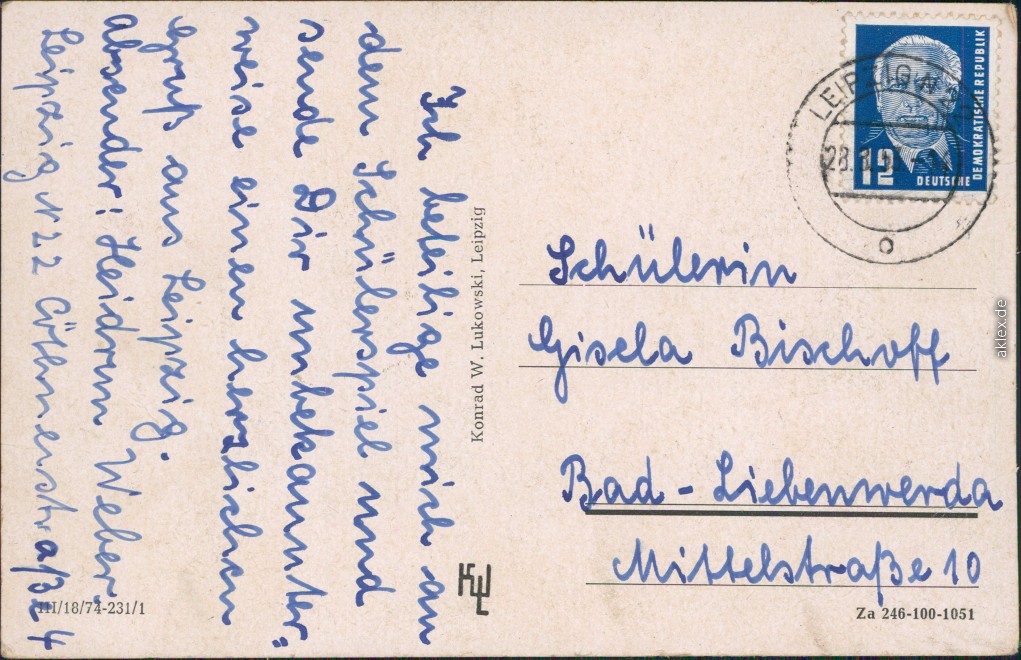 Ich beteilige mich an
dem Schülerspiel und
sende Dir unbekannter=
weise einen herzlichen
Gruß aus Leipzig.
Absender: Heidrun Weber.
Leipzig N 22 Straße 4
Konrad W. Lukowski, Leipzig
KWL
III/18/74-231/1
LEIPZIG N
12
DEUTSCHE
DEMOKRATISCHE REPUBLIK
Schülerin
Gisela Bischoff
Bad - Liebenwerda
Mittelstraße 10
Za 246-100-1051
aklex.de